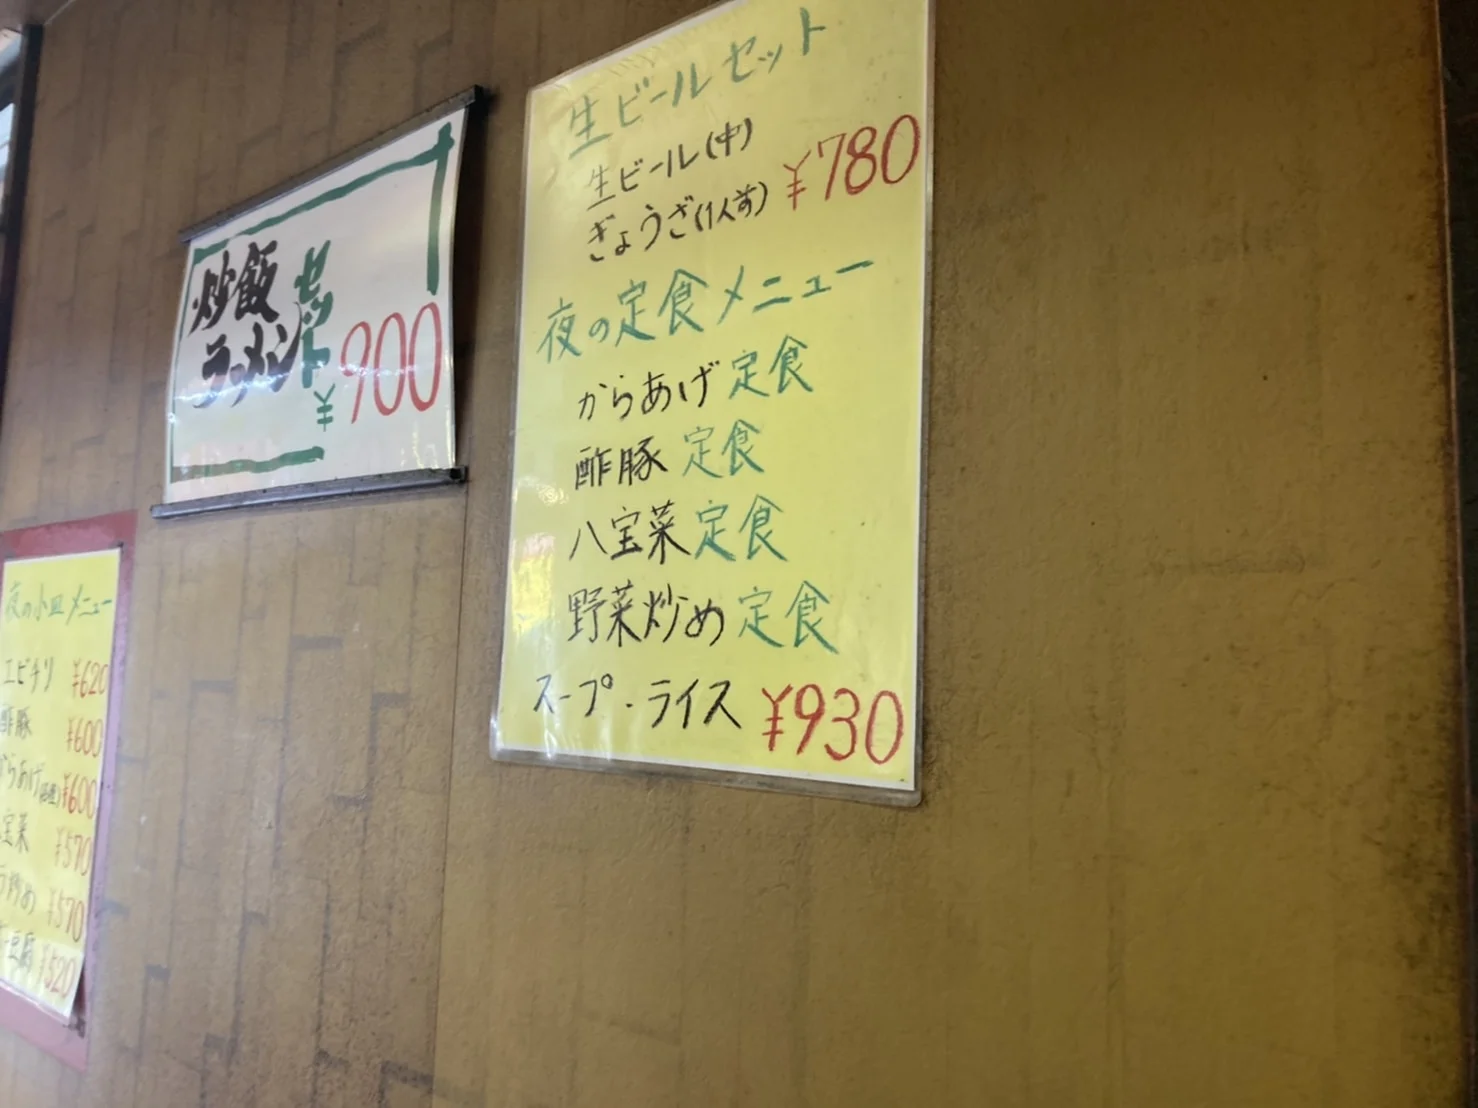 炒飯
ラーメン
セット
¥900
生ビールセット
生ビール(中)
ぎょうざ(1人前) ¥780
夜の定食メニュー
からあげ定食
酢豚定食
八宝菜定食
野菜炒め定食
スープ・ライス ¥930
夜の小皿メニュー
エビチリ ¥620
酢豚 ¥600
からあげ ¥600
宝菜 ¥570
炒め ¥570
豆腐 ¥520